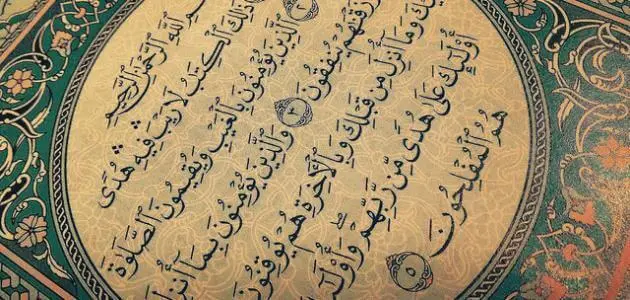 اللَّهِ الرَّحْمَٰنِ الرَّحِيمِ
ذَٰلِكَ الْكِتَٰبُ لَا رَيْبَ فِيهِ هُدًى
٢ الَّذِينَ يُؤْمِنُونَ بِالْغَيْبِ وَيُقِيمُونَ الصَّلَوٰةَ
يُنفِقُونَ ٣ وَالَّذِينَ يُؤْمِنُونَ بِمَآ أُنزِلَ
وَمَآ أُنزِلَ مِن قَبْلِكَ وَبِالْأَخِرَةِ هُمْ يُوقِنُونَ
أُو۟لَٰٓئِكَ عَلَىٰ هُدًى مِّن رَّبِّهِمْ وَأُو۟لَٰٓئِكَ
هُمُ الْمُفْلِحُونَ ٥